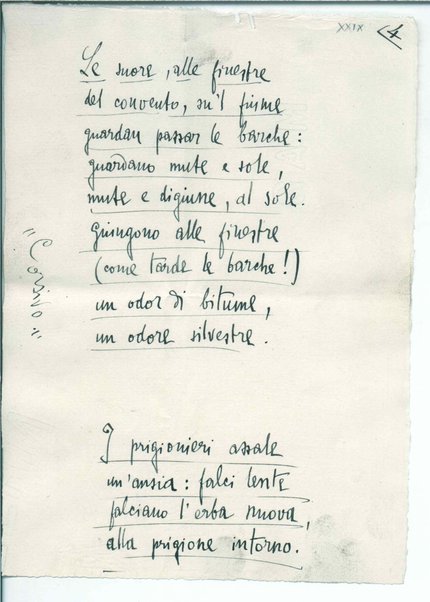 XXIX 4
Le suore, alle finestre
del convento, su'l fiume
guardan passar le barche:
guardano mute e sole,
mute e digiune, al sole.
Giungono alle finestre
(come tarde le barche!)
un odor di bitume,
un odore silvestre.
"Corsivo"
I prigionieri assale
un'ansia: falci lente
falciano l'erba nuova,
alla prigione intorno.